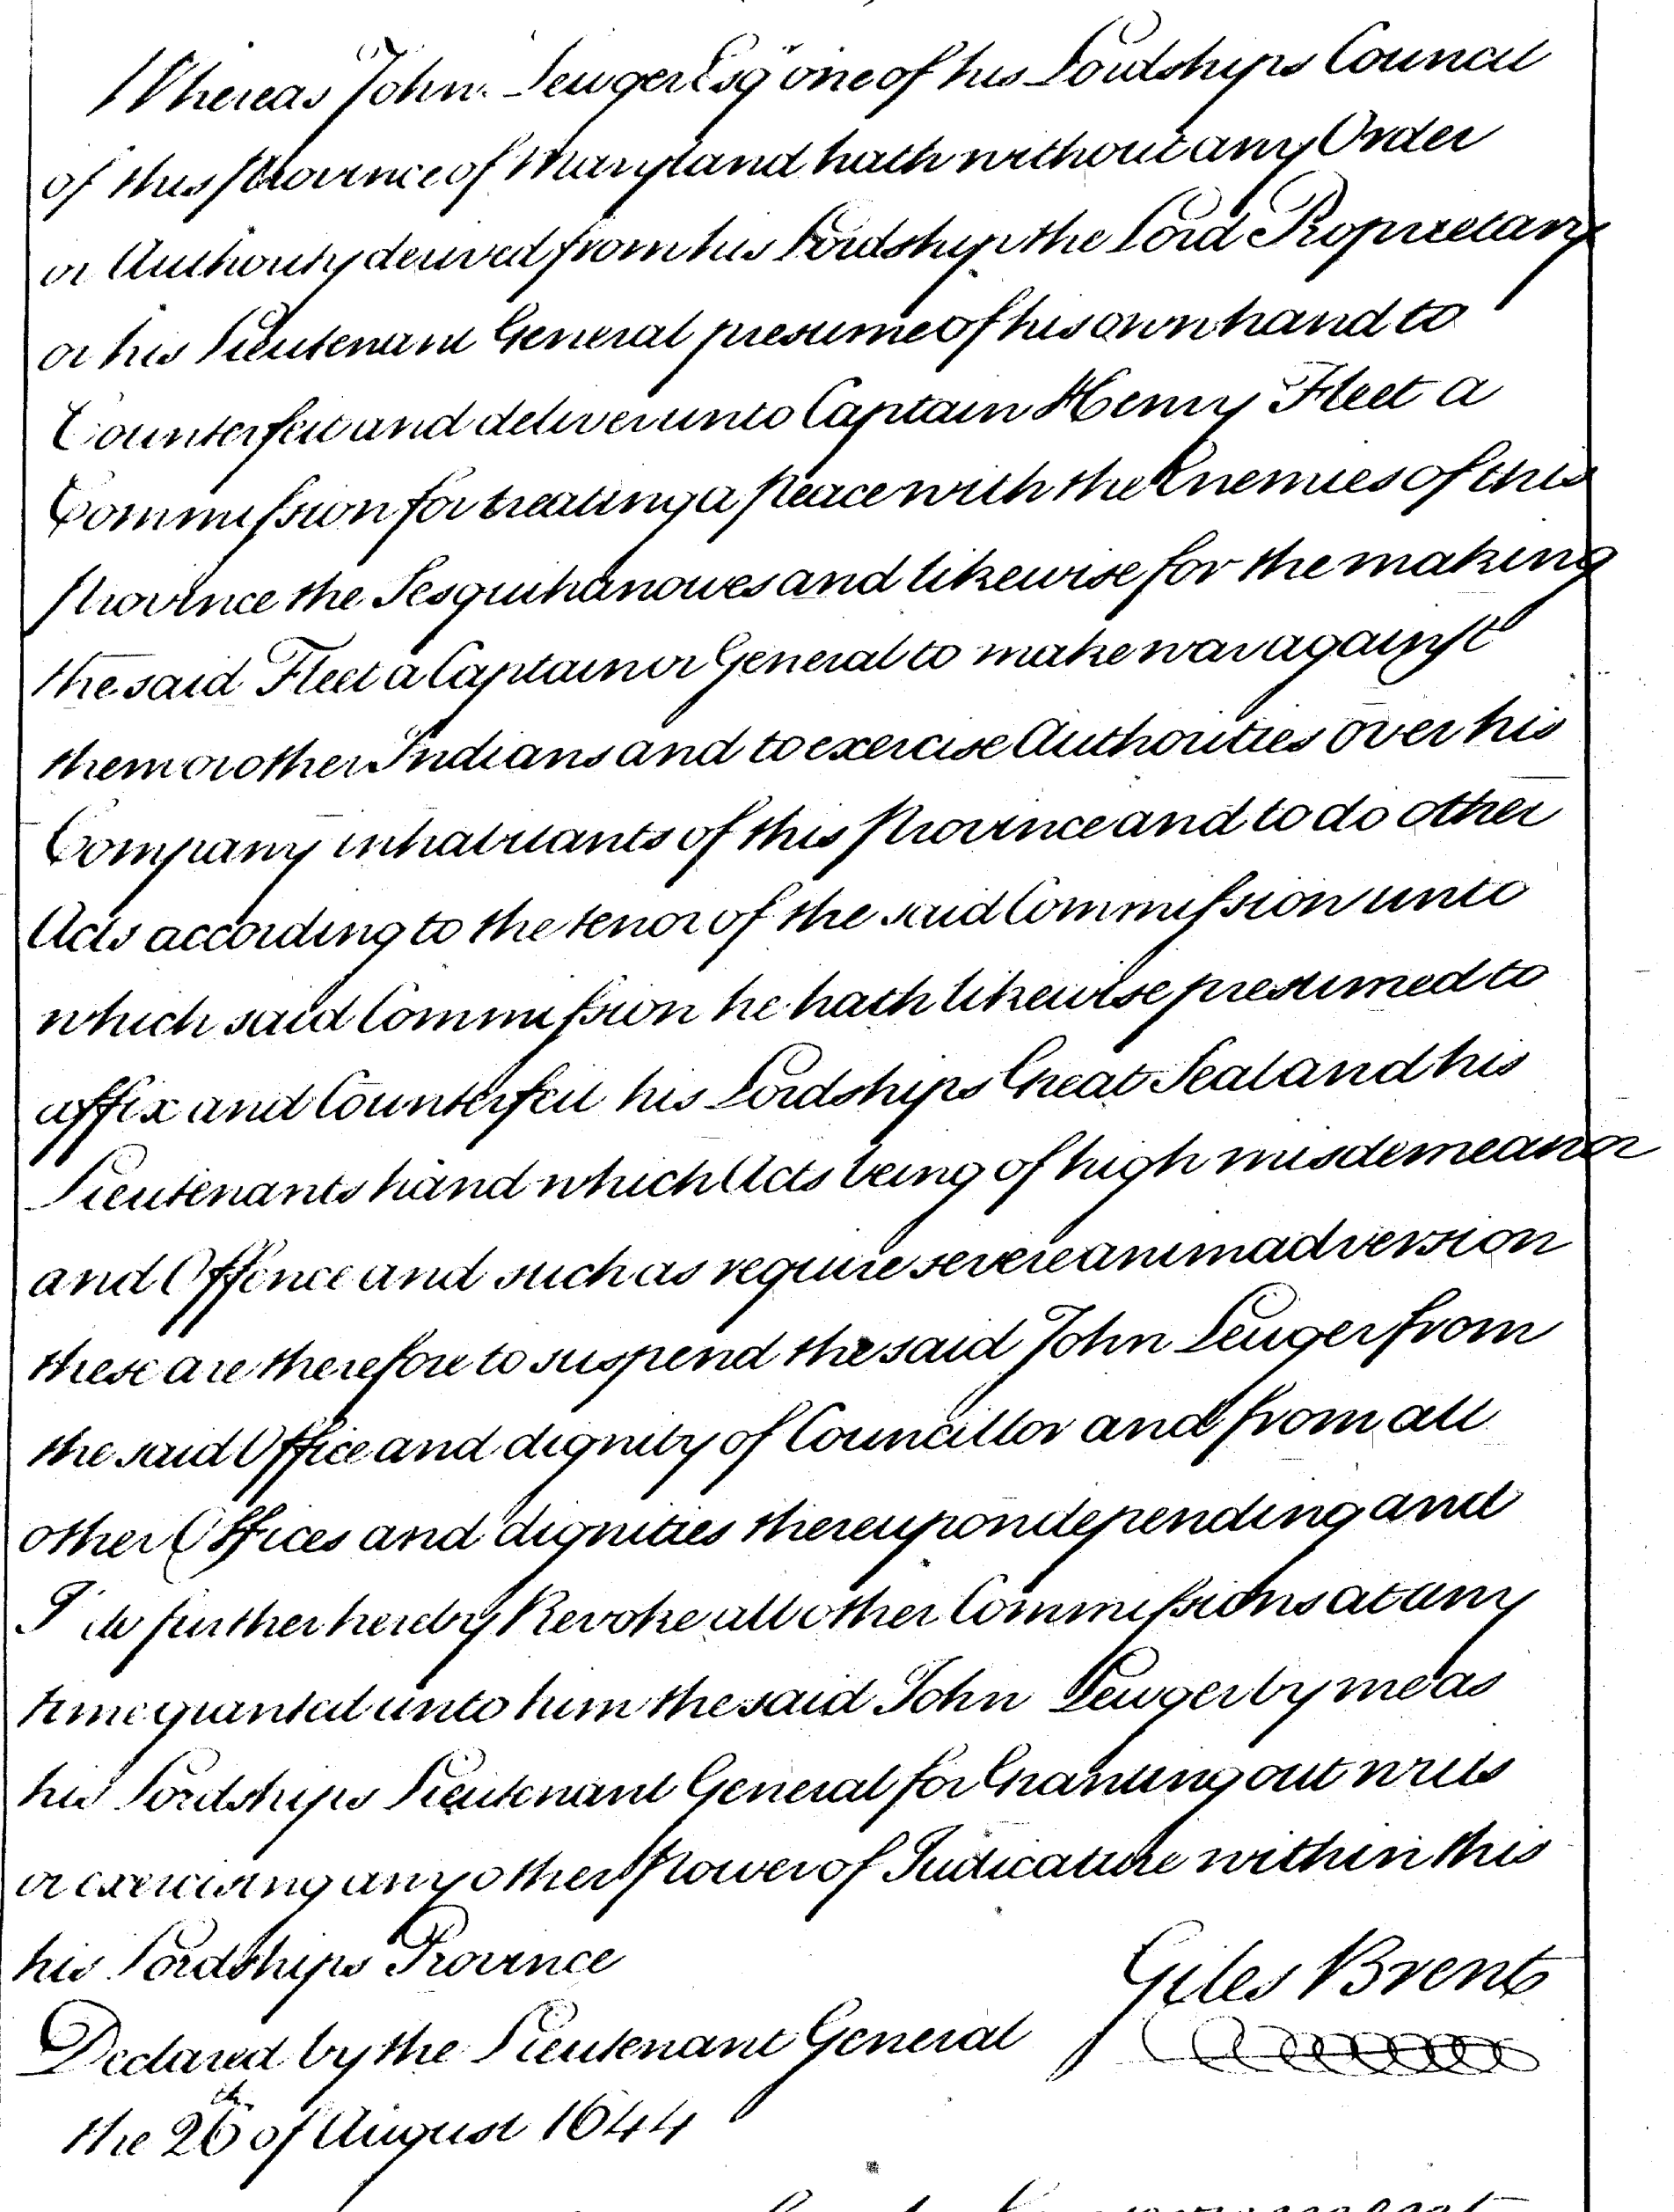 Whereas John Lewger Esqr one of his Lordships Council
of this Province of Maryland hath without any Order
or Authority derived from his Lordship the Lord Proprietary
or his Lieutenant General presume of his own hand to
Counterfeit and deliver unto Captain Henry Fleet a
Commission for treating a peace with the Enemies of this
Province the Sesquihanowes and likewise for the making
the said Fleet a Captain or General to make war against
them or other Indians and to exercise Authorities over his
Company inhabitants of this Province and to do other
Acts according to the tenor of the said Commission unto
which said Commission he hath likewise presumed to
affix and Counterfeit his Lordships Great Seal and his
Lieutenants hand which Acts being of high misdemeanor
and Offence and such as require severe animadversion
these are therefore to suspend the said John Leuger from
the said Office and dignity of Councillor and from all
other Offices and dignities thereupon depending and
I do further hereby Revoke all other Commissions at any
time granted unto him the said John Lewger by me as
his Lordships Lieutenant General for Granting out writs
or exercising any other Power of Judicature within this
his Lordships Province
Giles Brent
Declared by the Lieutenant General
the 26th of August 1644